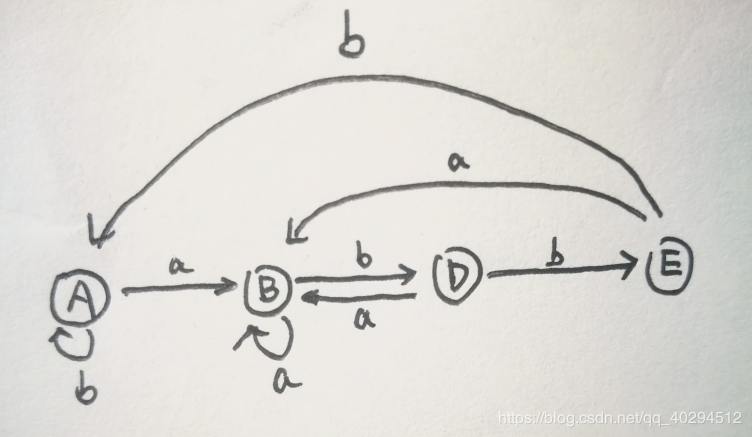 b
a
a
b
b
A
B
D
E
a
b
a
https://blog.csdn.net/qq_40294512